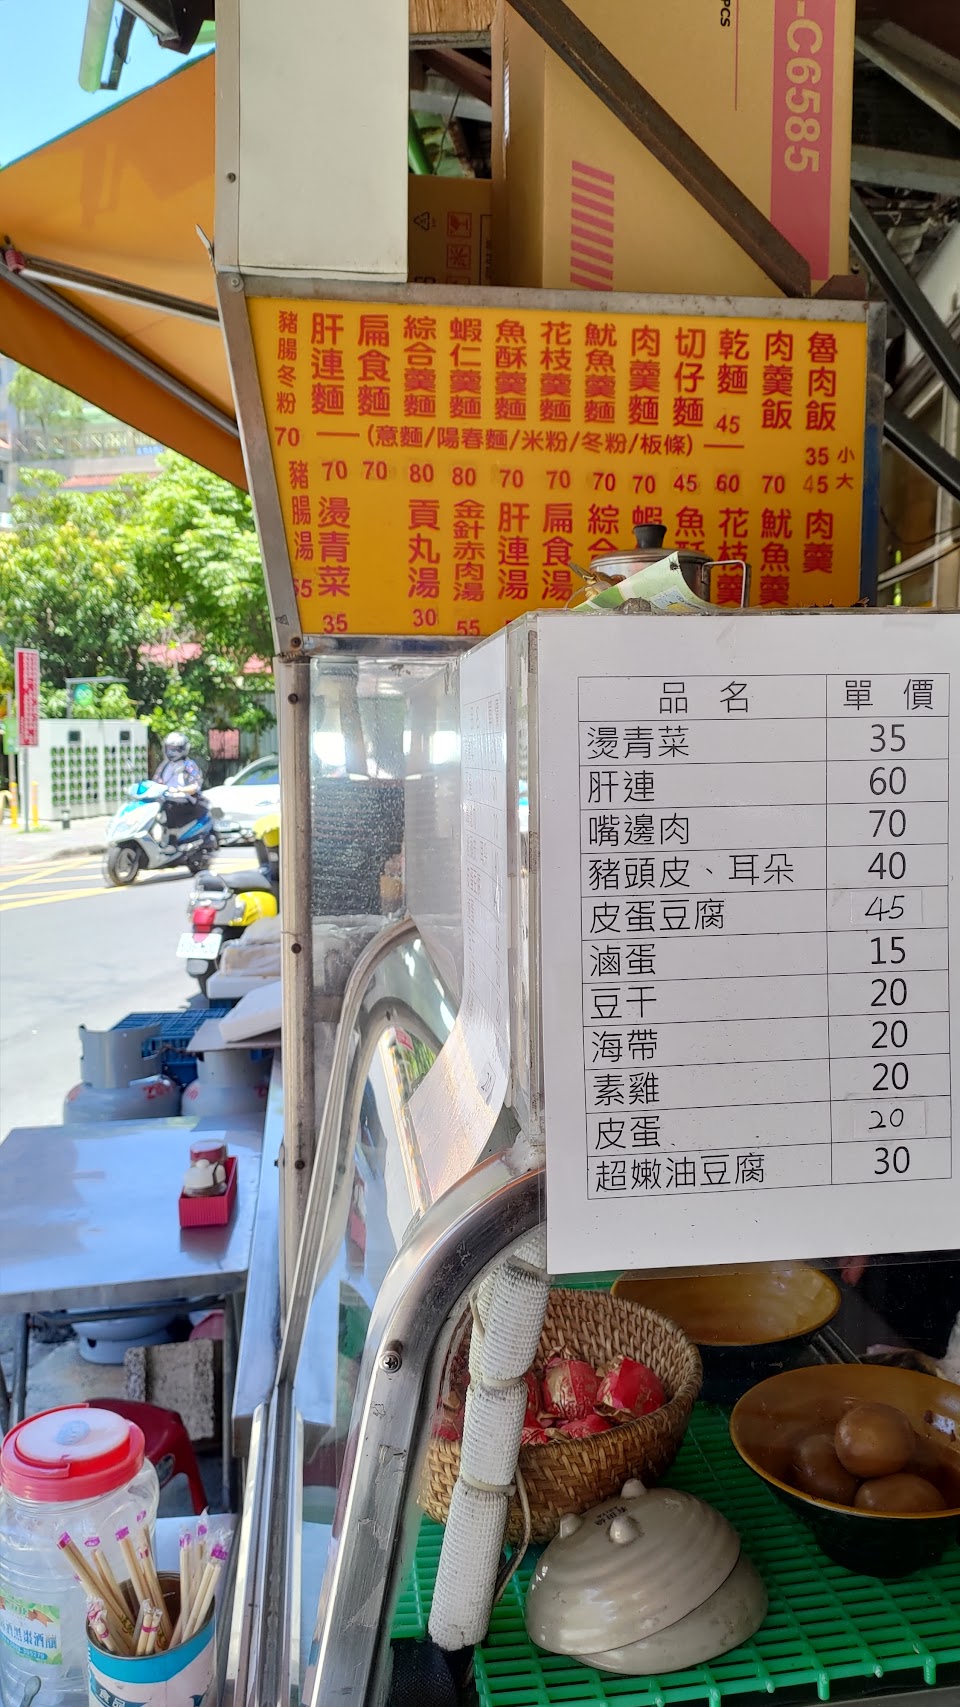 PCS
-C6585
魯肉飯
肉羹飯
乾麵
切仔麵
肉羹麵
魷魚羹麵
花枝羹麵
魚酥羹麵
蝦仁羹麵
綜合羹麵
扁食麵
肝連麵
豬腸冬粉
45
70 — (意麵/陽春麵/米粉/冬粉/板條) —
35 小
45 大
70
60
45
70
70
70
70
80
80
70
70
肉羹
魷魚羹
花枝羹
魚
蝦
綜合
扁食湯
肝連湯
金針赤肉湯
貢丸湯
燙青菜
豬腸湯
55
30
35
55
品名 單價
燙青菜 35
肝連 60
嘴邊肉 70
豬頭皮、耳朵 40
皮蛋豆腐 45
滷蛋 15
豆干 20
海帶 20
素雞 20
皮蛋 20
超嫩油豆腐 30